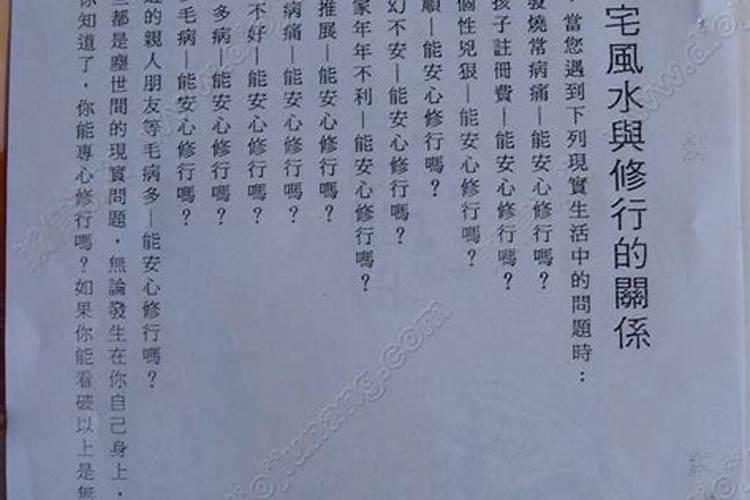 宅風水與修行的關係
，當您遇到下列現實生活中的問題時：
發燒常病痛—能安心修行嗎？
孩子註冊費—能安心修行嗎？
個性兇狠—能安心修行嗎？
順—能安心修行嗎？
幻不安—能安心修行嗎？
家年年不利—能安心修行嗎？
推展—能安心修行嗎？
病痛—能安心修行嗎？
不好—能安心修行嗎？
多病—能安心修行嗎？
毛病—能安心修行嗎？
的親人朋友等毛病多—能安心修行嗎？
都是塵世間的現實問題，無論發生在你自己身上，
你知道了，你能專心修行嗎？如果你能看破以上是無